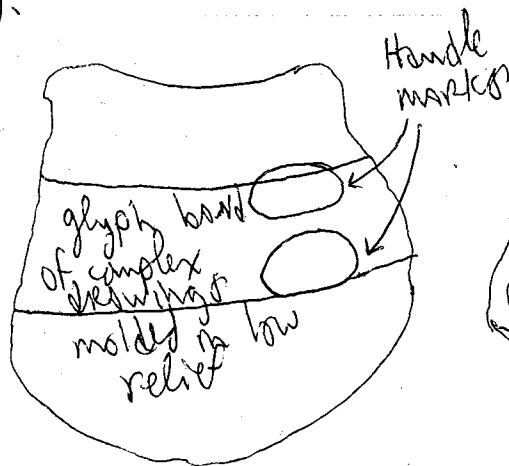 Handle
marks
glyph band
of complex
drawings
molded in low
relief